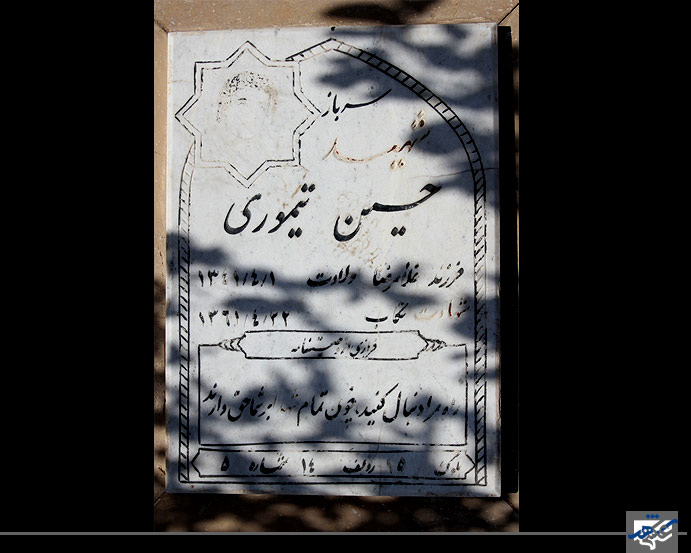 سرباز
شهید
حسین تیموری
فرزند غلامرضا ولادت ۱۳۴۱/۴/۱
شهادت ۱۳۶۱/۴/۲۲
فرازی از وصیتنامه
راه مرا دنبال کنید، چون تمام شهدا بر شما حق دارند
بلوک ۱۵ ردیف ۱۴ شماره ۵